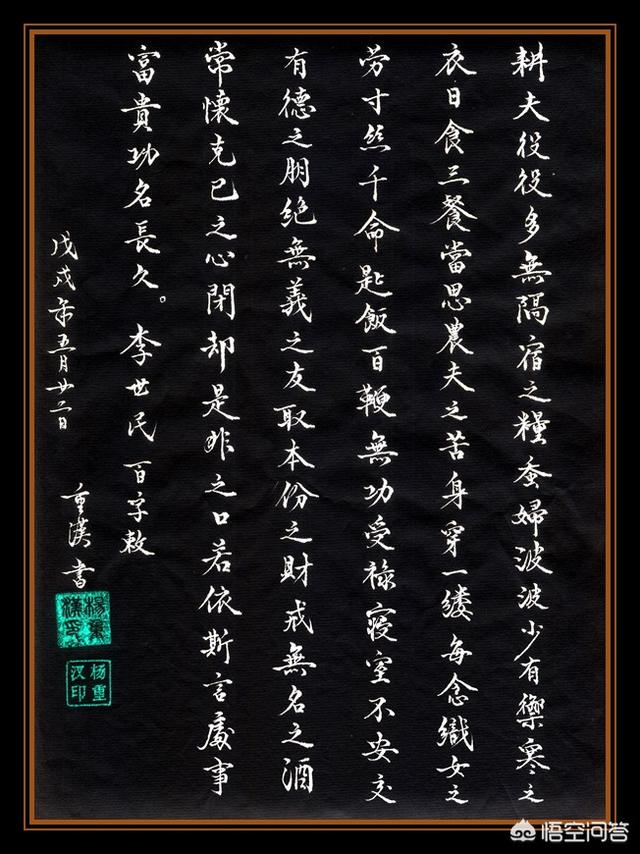 耕夫役役多無隔宿之糧蚕婦波波少有禦寒之
衣日食三餐當思農夫之苦身穿一缕每念織女之
劳寸丝千命匙飯百鞭無功受禄寝室不安交
有德之朋绝無義之友取本份之財戒無名之酒
常懷克已之心閉却是非之口若依斯言處事
富貴功名長久。李世民百字敕
戊戌年五月廿二日
重漢書
杨重
汉印
悟空问答